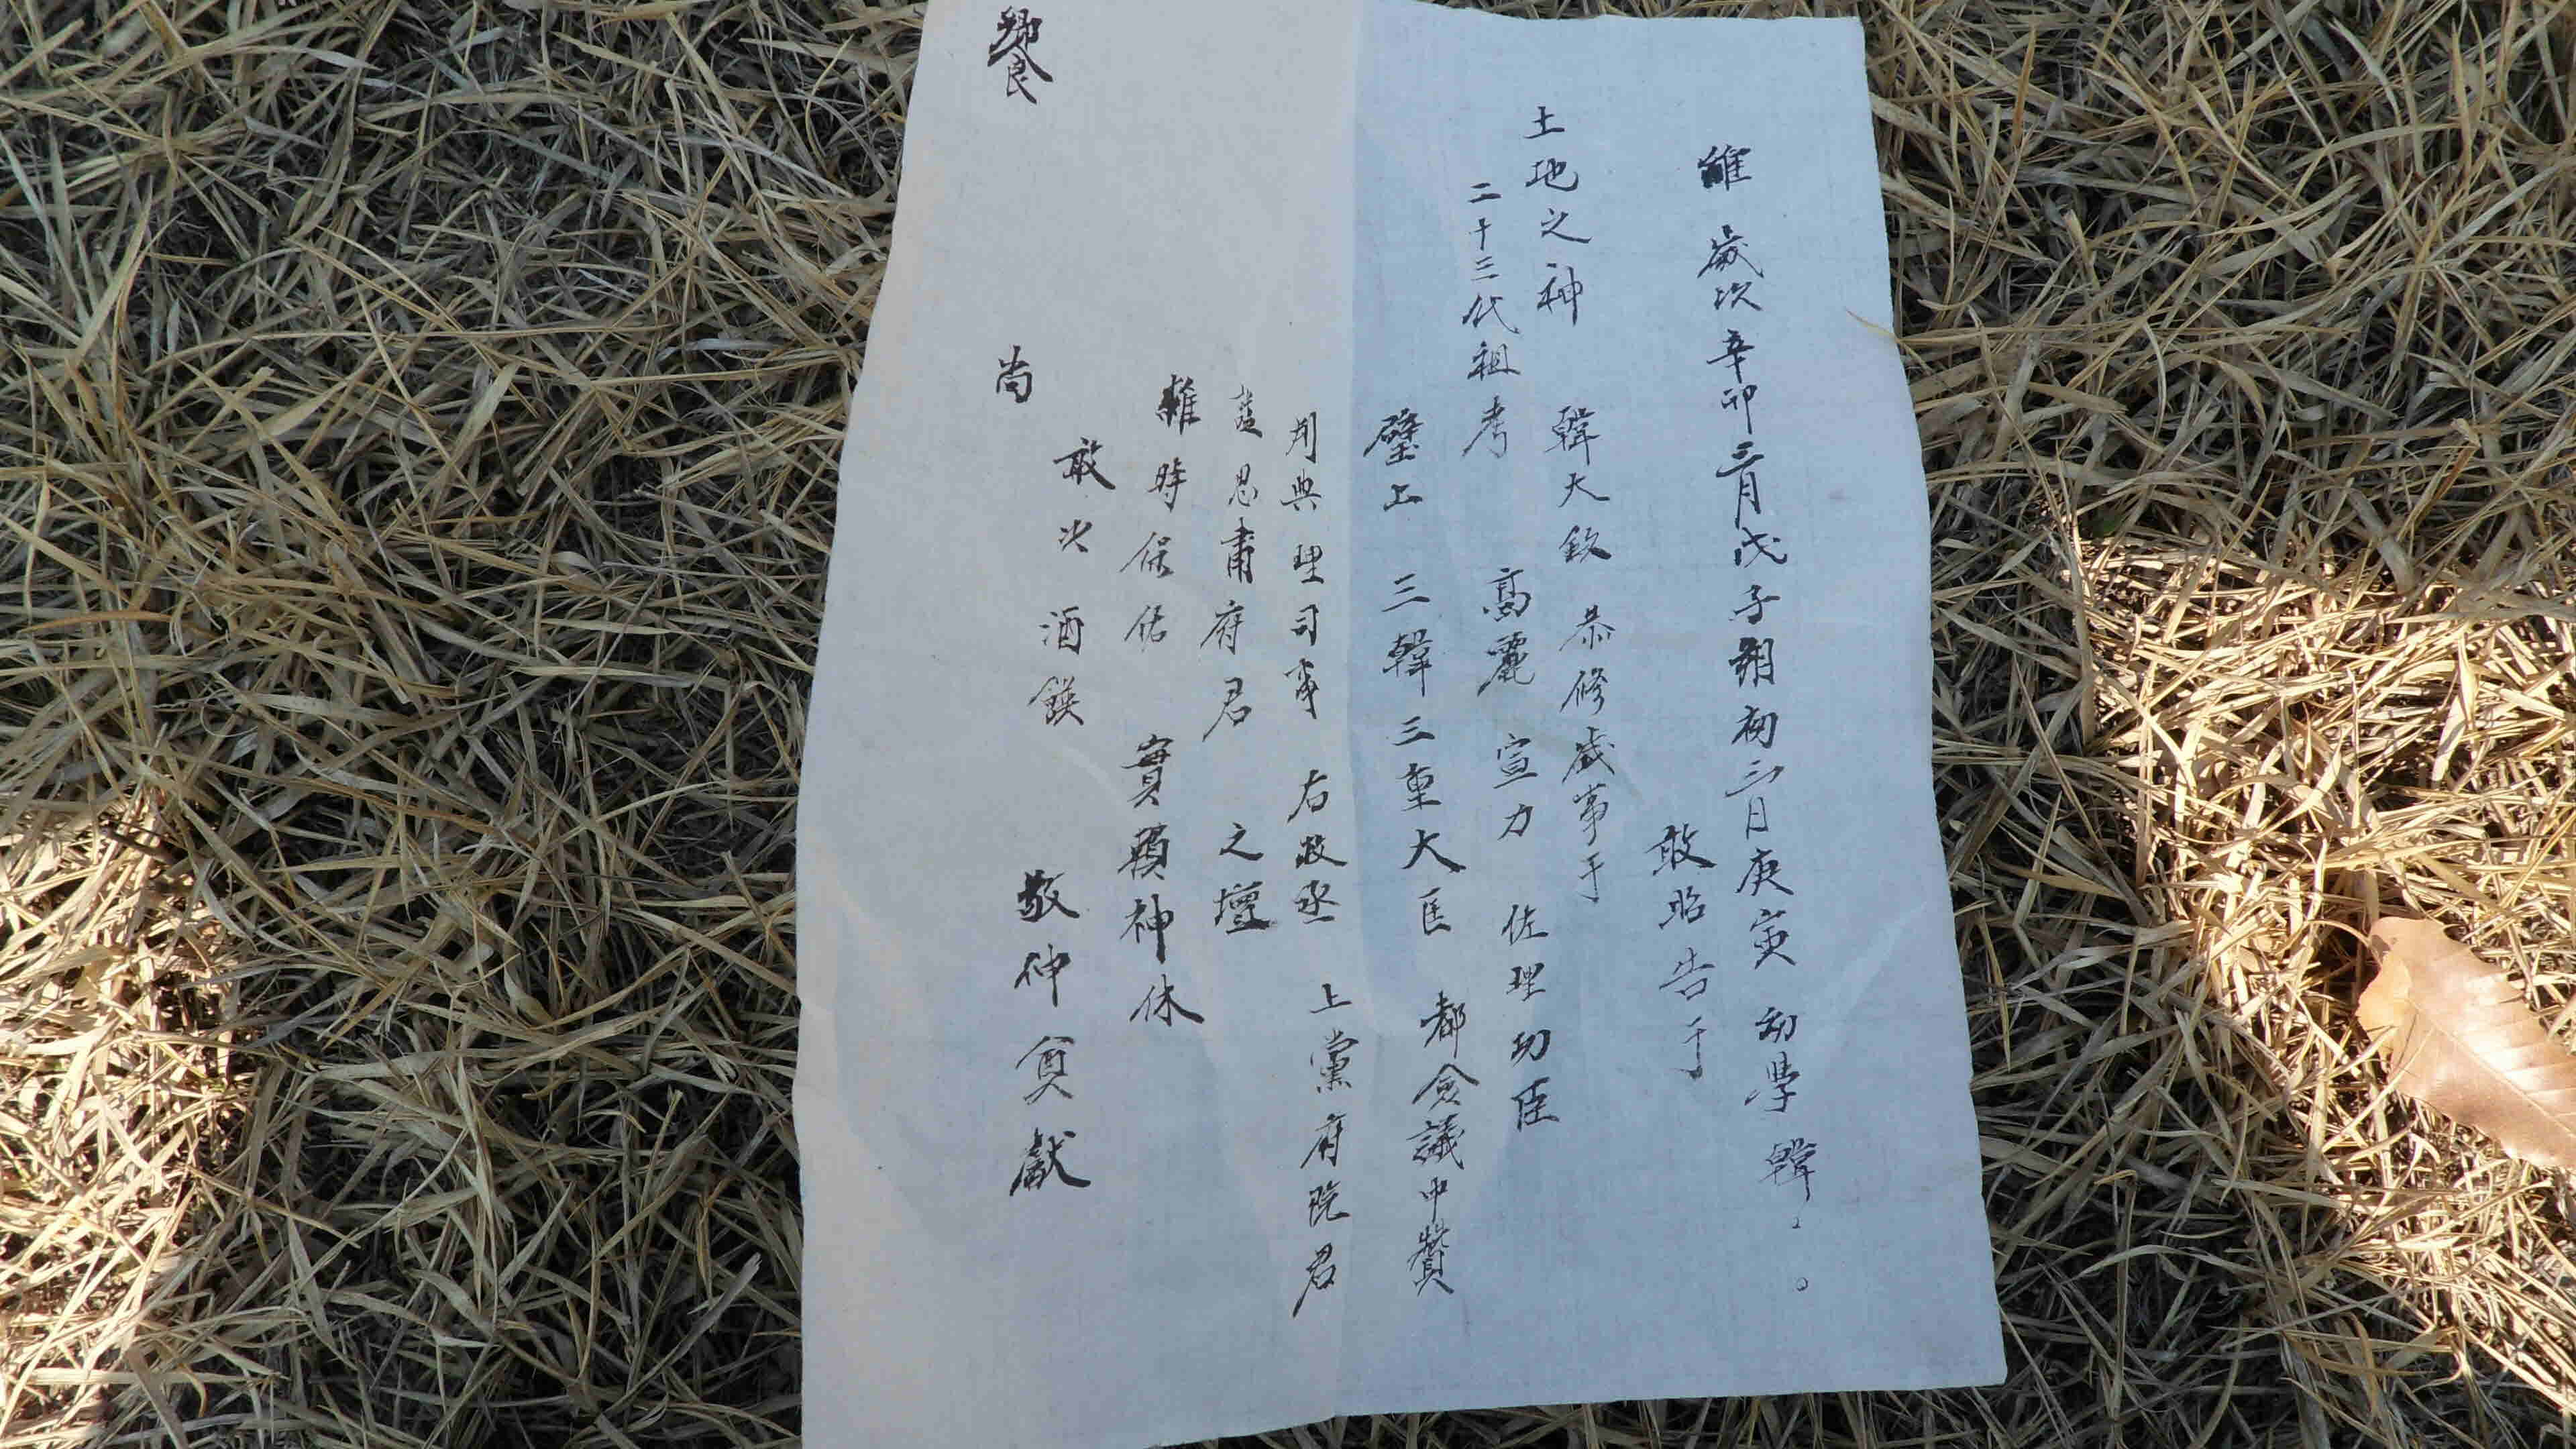 維 歲次辛卯三月戊子朔初三日庚寅 幼學 韓
敢昭告于
土地之神 韓大鈙 恭修歲事于
二十三代祖考 高麗 宣力 佐理功臣
壁上 三韓三重大匡 都僉議中贊
判典理司事 右政丞 上黨府院君
思肅府君 之壇
維時保佑 實賴神休
敢以酒饌 敬伸奠獻
尙
饗